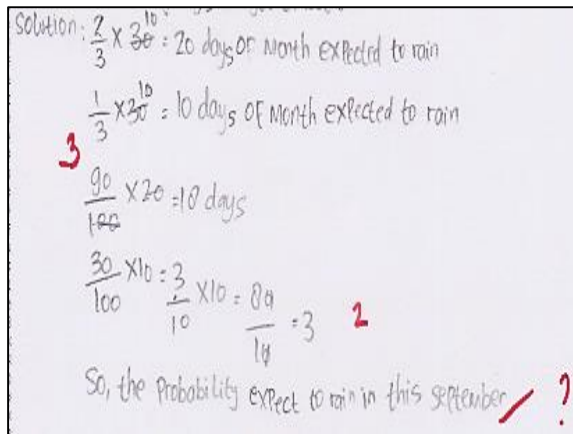 Solution: 2/3 × 30 10 = 20 days of Month expected to rain
1/3 × 30 10 = 10 days of Month expected to rain
3
90/100 × 20 = 18 days
30/100 × 10 = 3/10 × 10 = = 3 2
So, the probability expect to rain in this september / ?